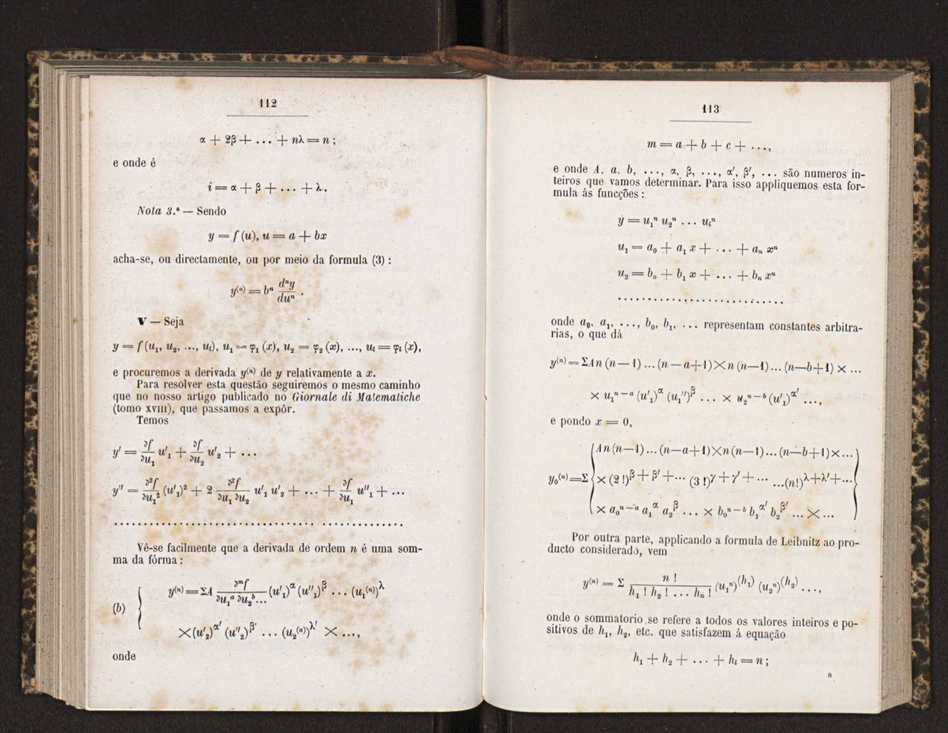 112
α + 2β + ... + nλ = n ;
e onde é
i = α + β + ... + λ.
Nota 3.ª — Sendo
y = f (u), u = a + bx
acha-se, ou directamente, ou por meio da formula (3) :
y⁽ⁿ⁾ = bⁿ dⁿy / duⁿ .
V — Seja
y = f (u₁, u₂, ..., uₗ), u₁ = φ₁ (x), u₂ = φ₂ (x), ..., uₗ = φₗ (x),
e procuremos a derivada y⁽ⁿ⁾ de y relativamente a x.
Para resolver esta questão seguiremos o mesmo caminho
que no nosso artigo publicado no Giornale di Matematiche
(tomo XVIII), que passamos a expôr.
Temos
y' = ∂f/∂u₁ u'₁ + ∂f/∂u₂ u'₂ + ...
y'' = ∂²f/∂u₁² (u'₁)² + 2 ∂²f/∂u₁ ∂u₂ u'₁ u'₂ + ... + ∂f/∂u₁ u''₁ + ...
................................................
Vê-se facilmente que a derivada de ordem n é uma som-
ma da fórma :
(b) { y⁽ⁿ⁾ = ΣA ∂ᵐf / ∂u₁ᵃ ∂u₂ᵇ... (u'₁)^α (u''₁)^β ... (u₁⁽ⁿ⁾)^λ
× (u'₂)^α' (u''₂)^β' ... (u₂⁽ⁿ⁾)^λ' × ...,
onde
113
m = a + b + c + ...,
e onde A, a, b, ..., α, β, ..., α', β', ... são numeros in-
teiros que vamos determinar. Para isso appliquemos esta for-
mula ás funcções :
y = u₁ⁿ u₂ⁿ ... uₗⁿ
u₁ = a₀ + a₁ x + ... + aₙ xⁿ
u₂ = b₀ + b₁ x + ... + bₙ xⁿ
............................
onde a₀, a₁, ..., b₀, b₁, ... representam constantes arbitra-
rias, o que dá
y⁽ⁿ⁾ = ΣAn (n—1) ... (n — a+1) × n (n—1) ... (n—b+1) × ...
× u₁ⁿ⁻ᵃ (u'₁)^α (u₁'')^β ... × u₂ⁿ⁻ᵇ (u'₂)^α' ...,
e pondo x = 0,
y₀⁽ⁿ⁾ = Σ { An(n—1)...(n—a+1)×n(n—1)...(n—b+1)×... }
× (2 !)^β + β' + ... (3 !)^γ + γ' + ... ...(n!)^λ+λ'+...
× a₀ⁿ⁻ᵃ a₁^α a₂^β ... × b₀ⁿ⁻ᵇ b₁^α' b₂^β' ... × ...
Por outra parte, applicando a formula de Leibnitz ao pro-
ducto considerado, vem
y⁽ⁿ⁾ = Σ n ! / h₁ ! h₂ ! ... hₙ ! (u₁ⁿ)^(h₁) (u₂ⁿ)^(h₂) ...,
onde o sommatorio se refere a todos os valores inteiros e po-
sitivos de h₁, h₂, etc. que satisfazem á equação
h₁ + h₂ + ... + hₗ = n ;
8